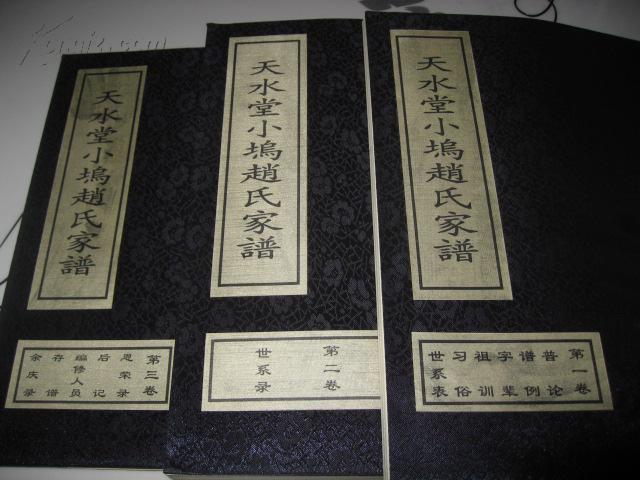 天水堂小塢趙氏家譜
第一卷
普论
谱例
字辈
祖训
习俗
世系表
天水堂小塢趙氏家譜
第二卷
世系录
天水堂小塢趙氏家譜
第三卷
恩荣录
后记
编修人员
存谱
余庆录